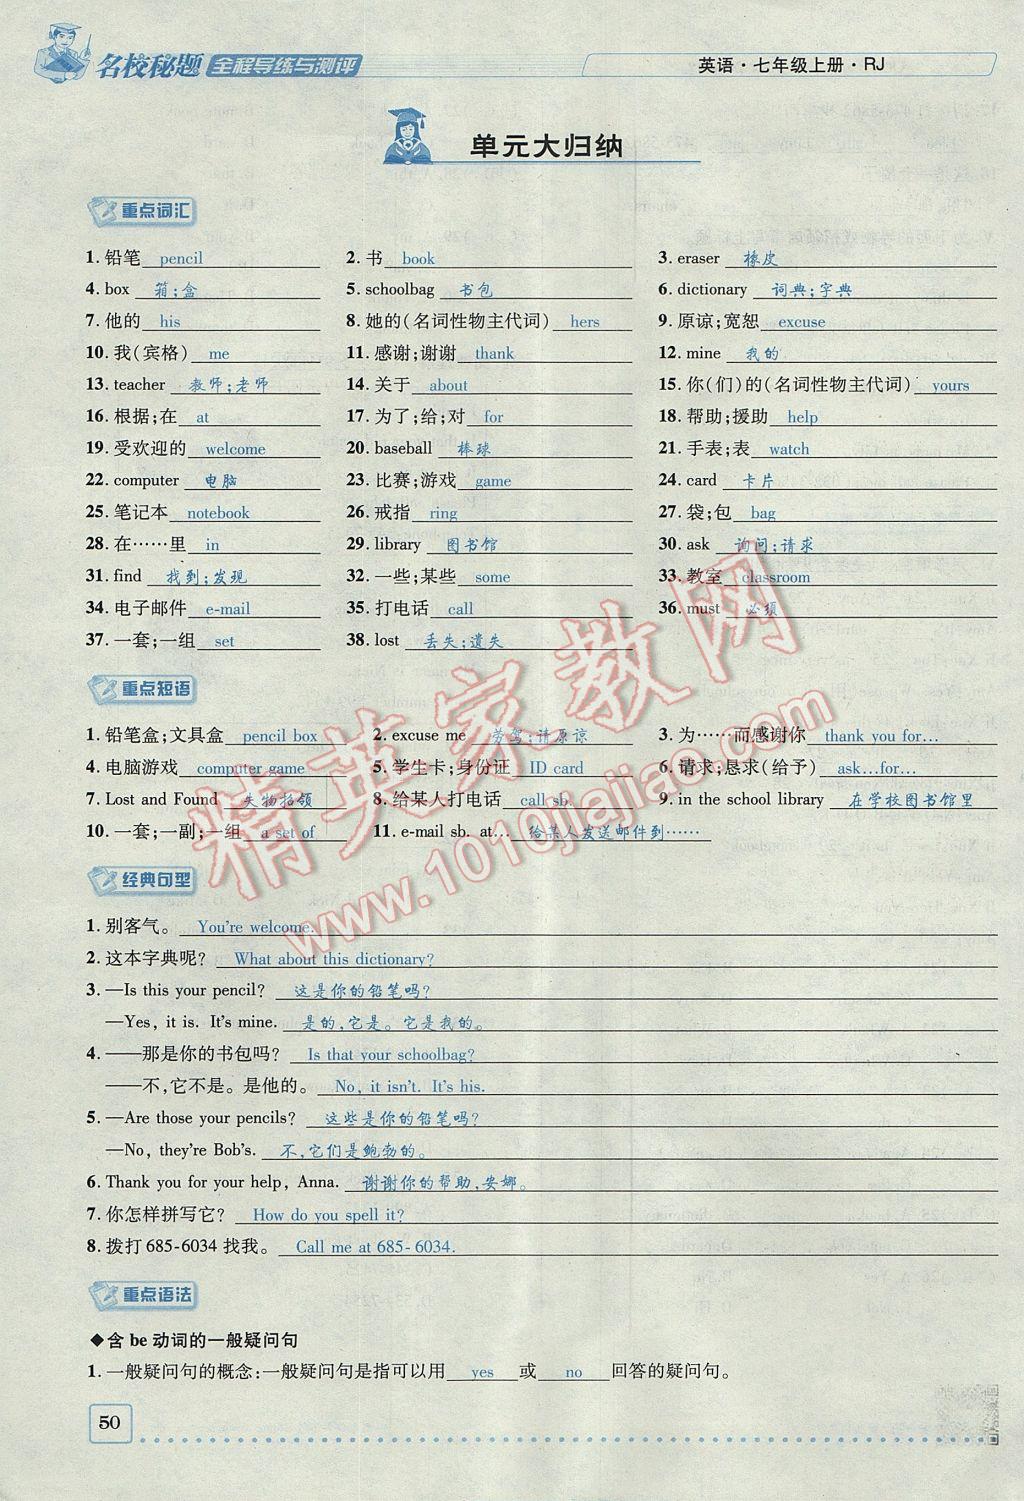 名校秘题 全程导练与测评 英语·七年级上册·RJ
单元大归纳
重点词汇
1. 铅笔 pencil 2. 书 book 3. eraser 橡皮
4. box 箱;盒 5. schoolbag 书包 6. dictionary 词典;字典
7. 他的 his 8. 她的(名词性物主代词) hers 9. 原谅;宽恕 excuse
10. 我(宾格) me 11. 感谢;谢谢 thank 12. mine 我的
13. teacher 教师;老师 14. 关于 about 15. 你(们)的(名词性物主代词) yours
16. 根据;在 at 17. 为了;给;对 for 18. 帮助;援助 help
19. 受欢迎的 welcome 20. baseball 棒球 21. 手表;表 watch
22. computer 电脑 23. 比赛;游戏 game 24. card 卡片
25. 笔记本 notebook 26. 戒指 ring 27. 袋;包 bag
28. 在……里 in 29. library 图书馆 30. ask 询问;请求
31. find 找到;发现 32. 一些;某些 some 33. 教室 classroom
34. 电子邮件 e-mail 35. 打电话 call 36. must 必须
37. 一套;一组 set 38. lost 丢失;遗失
重点短语
1. 铅笔盒;文具盒 pencil box 2. excuse me 劳驾;请原谅 3. 为……而感谢你 thank you for…
4. 电脑游戏 computer game 5. 学生卡;身份证 ID card 6. 请求;恳求(给予) ask…for…
7. Lost and Found 失物招领 8. 给某人打电话 call sb. 9. in the school library 在学校图书馆里
10. 一套;一副;一组 a set of 11. e-mail sb. at… 给某人发送邮件到……
经典句型
1. 别客气。 You're welcome.
2. 这本字典呢? What about this dictionary?
3. —Is this your pencil? 这是你的铅笔吗?
—Yes, it is. It's mine. 是的,它是。它是我的。
4. ——那是你的书包吗? Is that your schoolbag?
——不,它不是。是他的。 No, it isn't. It's his.
5. —Are those your pencils? 这些是你的铅笔吗?
—No, they're Bob's. 不,它们是鲍勃的。
6. Thank you for your help, Anna. 谢谢你的帮助,安娜。
7. 你怎样拼写它? How do you spell it?
8. 拨打 685-6034 找我。 Call me at 685-6034.
重点语法
◆含 be 动词的一般疑问句
1. 一般疑问句的概念:一般疑问句是指可以用 yes 或 no 回答的疑问句。
50
精英家教网
www.1010jiajiao.com